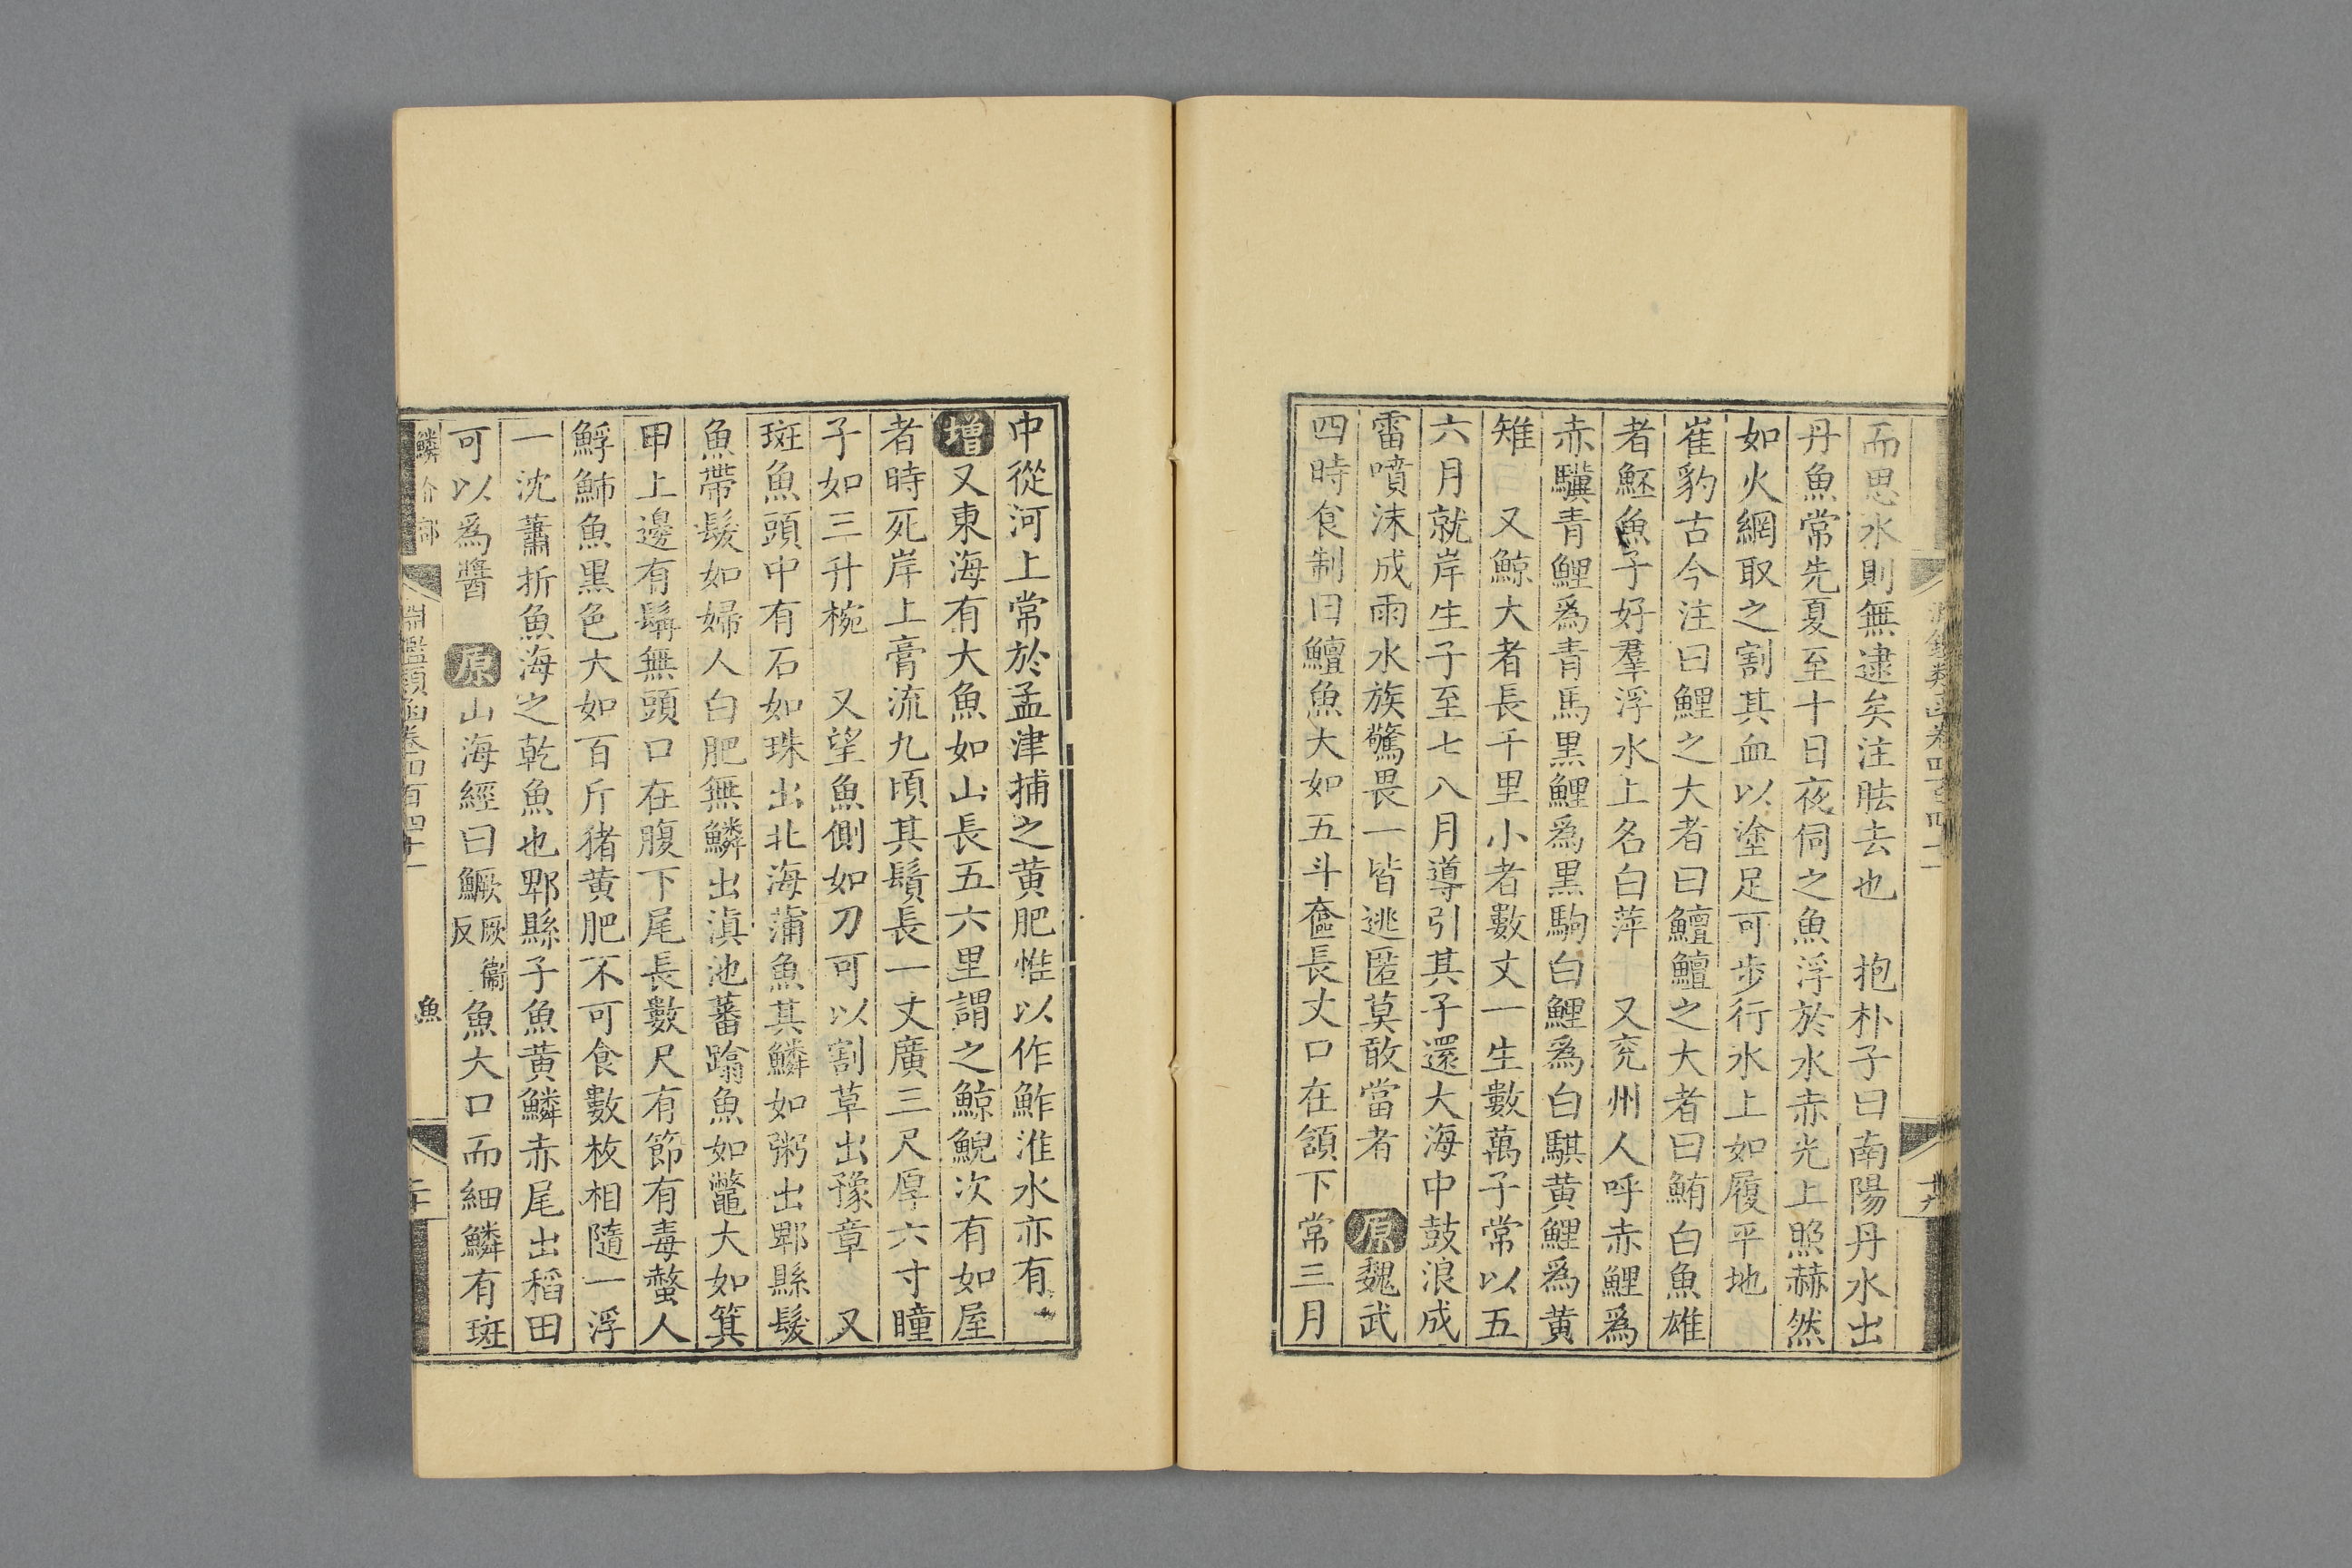 而思水則無逮矣注胠去也　抱朴子曰南陽丹水出
丹魚常先夏至十日夜伺之魚浮於水赤光上照赫然
如火網取之割其血以塗足可步行水上如履平地
崔豹古今注曰鯉之大者曰鱣鱣之大者曰鮪白魚雄
者魾魚子好羣浮水上名白萍　又兗州人呼赤鯉爲
赤驥青鯉爲青馬黑鯉爲黑駒白鯉爲白騏黃鯉爲黃
雉　又鯨大者長千里小者數丈一生數萬子常以五
六月就岸生子至七八月導引其子還大海中鼓浪成
雷噴沫成雨水族驚畏一皆逃匿莫敢當者　原魏武
四時食制曰鱣魚大如五斗奩長丈口在頷下常三月
中從河上常於孟津捕之黃肥惟以作鮓淮水亦有
增又東海有大魚如山長五六里謂之鯨鯢次有如屋
者時死岸上膏流九頃其鬚長一丈廣三尺厚六寸瞳
子如三升椀　又望魚側如刀可以割草出豫章　又
斑魚頭中有石如珠出北海蒲魚其鱗如粥出郫縣髮
魚帶髮如婦人白肥無鱗出滇池蕃踰魚如鼈大如箕
甲上邊有髯無頭口在腹下尾長數尺有節有毒螫人
鯙魳魚黑色大如百斤猪黃肥不可食數枚相隨一浮
一沈蕭折魚海之乾魚也郫縣子魚黃鱗赤尾出稻田
可以爲醬　原山海經曰鱖厥衞反魚大口而細鱗有斑
鱗介部　淵鑑類函卷四百四十一　魚　二十